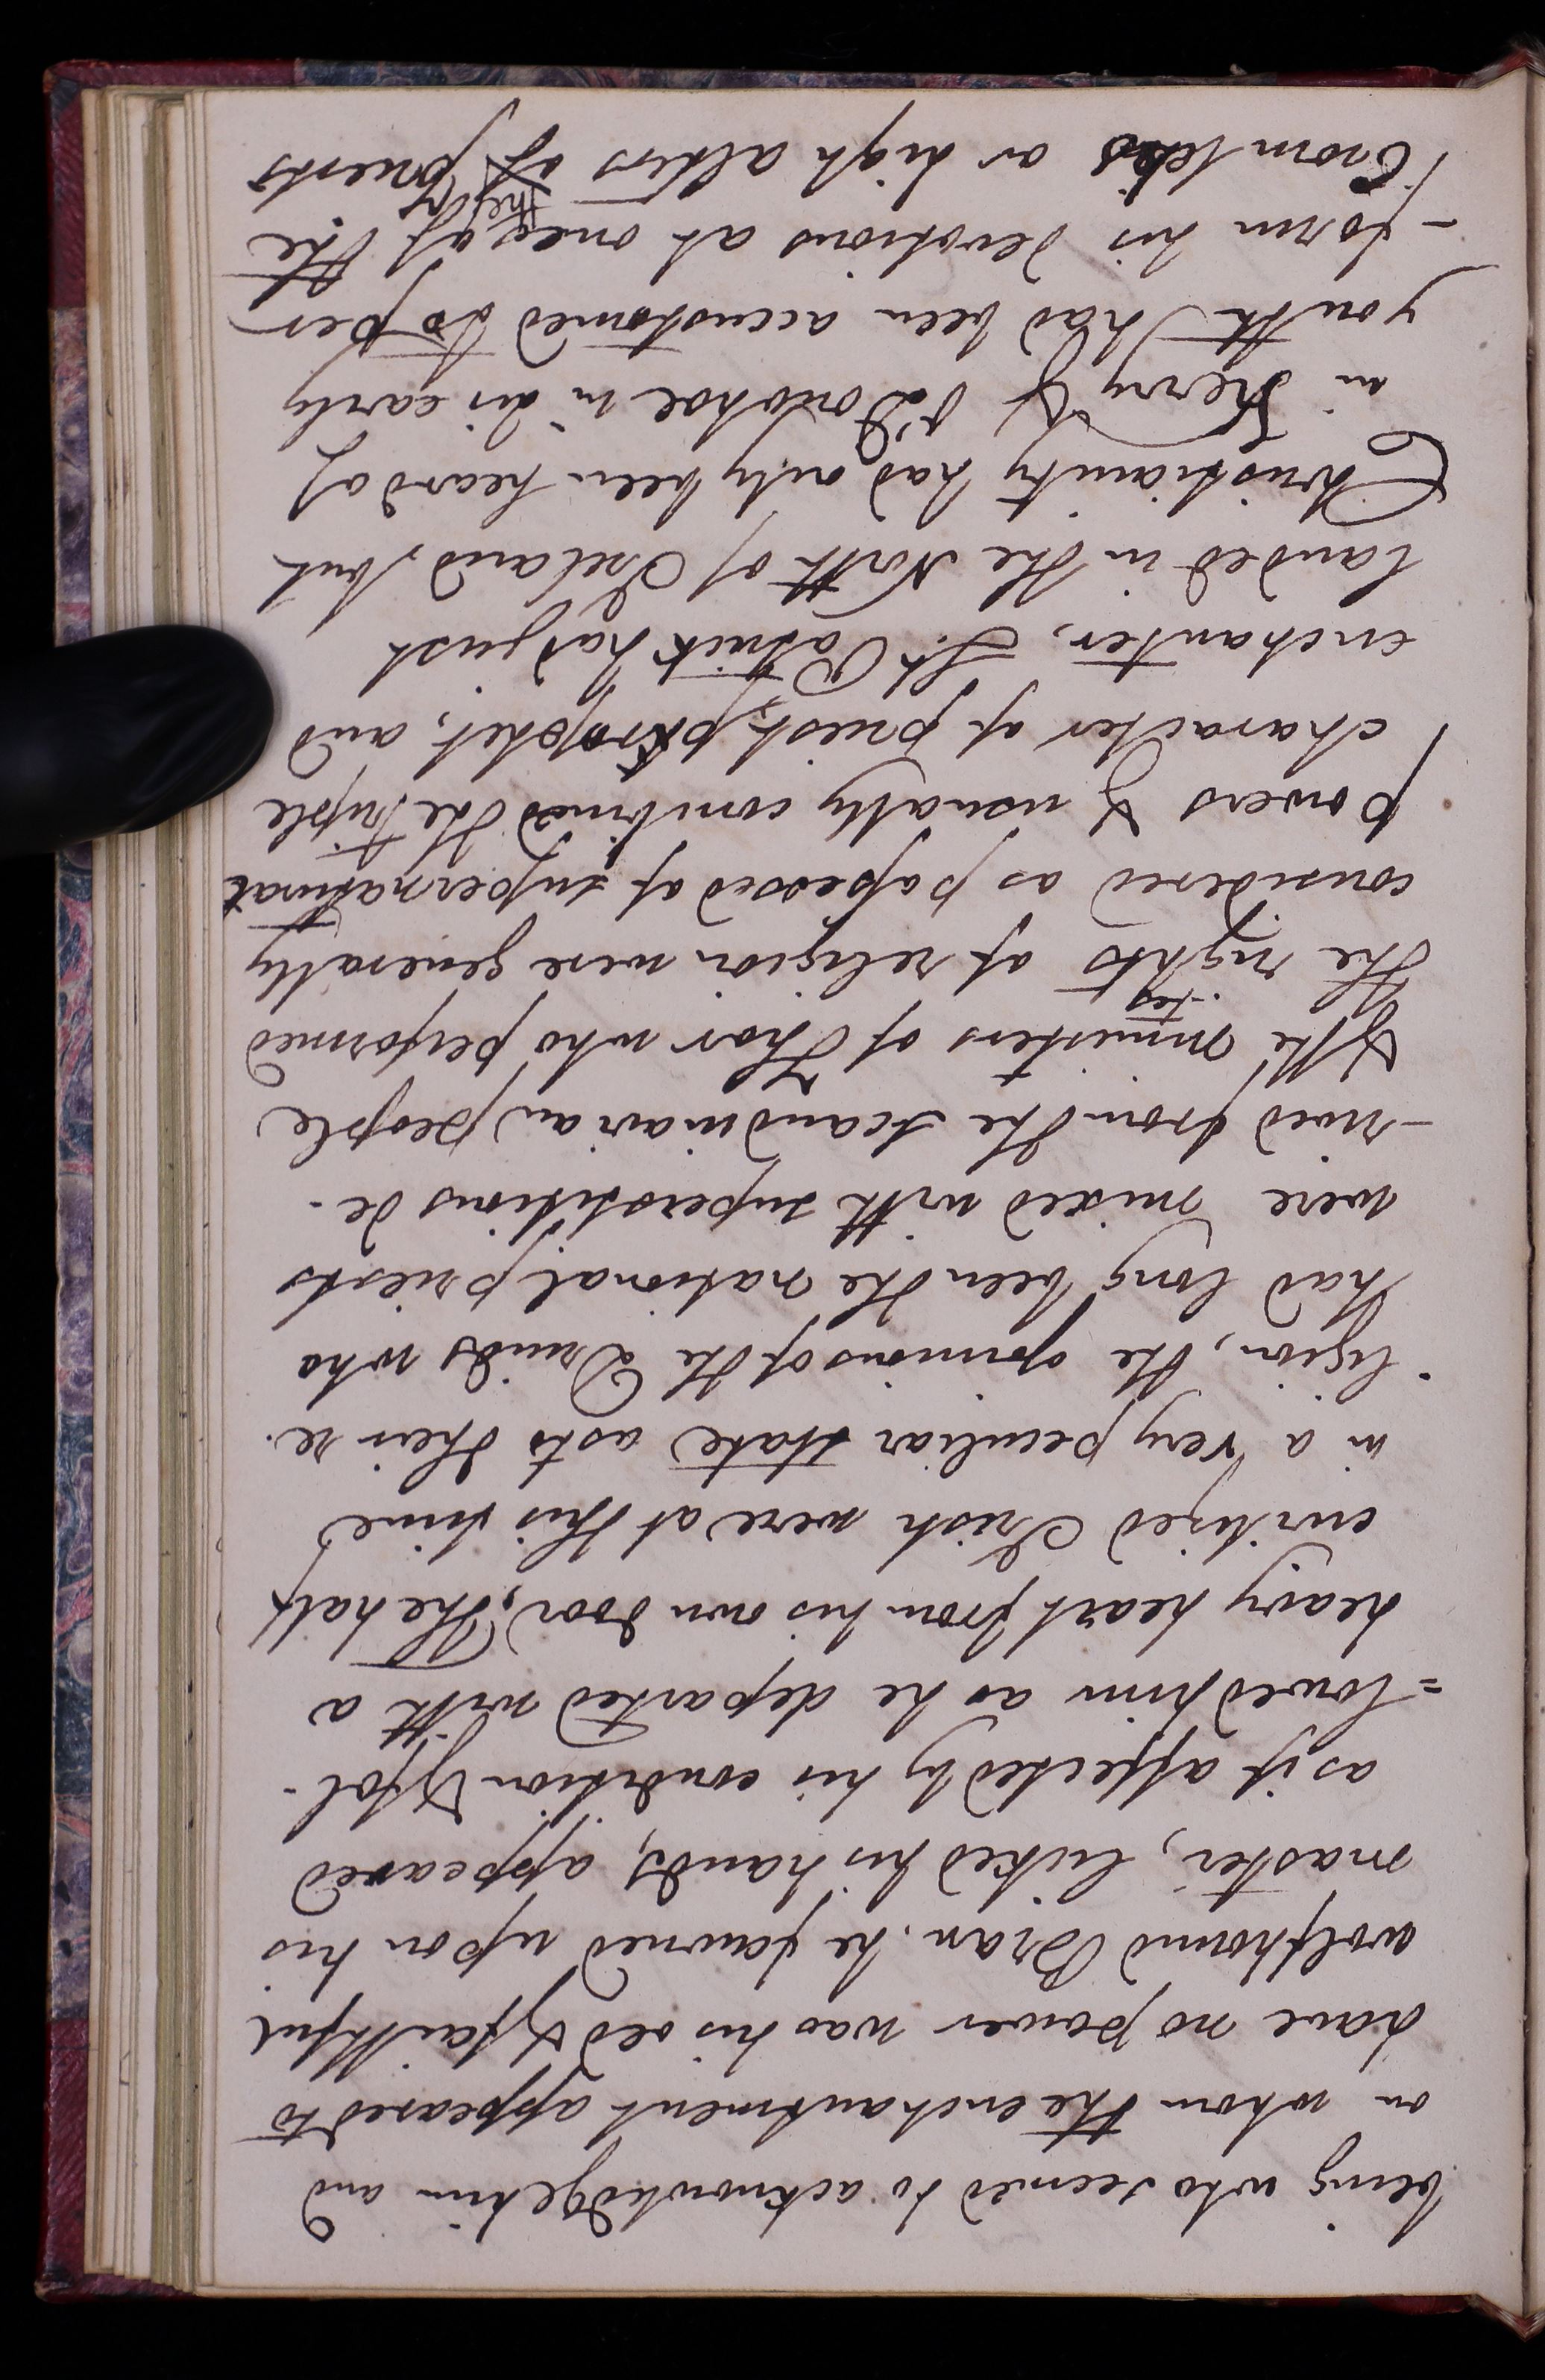 being who seemed to acknowledge him and
on whom the enchantment appeared to
have no power was his old & faithful
wolfhound Bran. he fawned upon his
master, licked his hands, appeared
as if affected by his condition & fol-
=lowed him as he departed with a
heavy heart from his own door, The half
civilized Irish were at this time
in a very peculiar state as to their re-
ligion, the opinions of the Druids who
had long been the national priests
were mixed with superstitions de-
-rived from the Scandinavian people
& the ministers of Thor who performed
the rights -tes of religion were generally
considered as possessed of supernatural
powers & usually combined the triple
character of priest, prophet, and
enchanter, St. Patrick had just
landed in the North of Ireland, but
Christianity had only been heard of
in Kerry & O'Donohoe in his early
youth had been accustomed to per
-form his devotions at one of the
Cromlehs or high altars of the priests